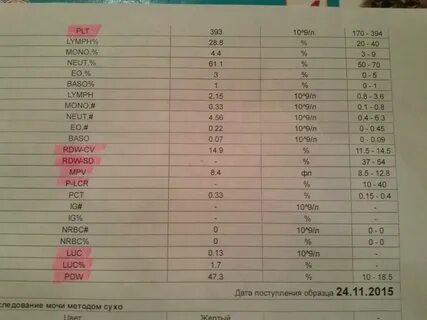 PLT 393 10^9/л 170 - 394
LYMPH% 28.8 % 20 - 40
MONO.% 4.4 % 3 - 9
NEUT.% 61.1 % 50 - 70
EO.% 3 % 0 - 5
BASO% 1 % 0 - 1
LYMPH 2.15 10^9/л 0.8 - 3.6
MONO.# 0.33 10^9/л 0.1 - 0.8
NEUT.# 4.56 10^9/л 0.4 - 5.3
EO.# 0.22 10^9/л 0 - 0.45
BASO 0.07 10^9/л 0 - 0.09
RDW-CV 14.9 % 11.5 - 14.5
RDW-SD - % 37 - 54
MPV 8.4 фл 8.5 - 12.8
P-LCR % 10 - 40
PCT 0.33 % 0.15 - 0.4
IG# - 10^9/л -
IG% - % -
NRBC# 0 10^9/л -
NRBC% 0 % -
LUC 0.13 10^9/л -
LUC% 1.7 % -
PDW 47.3 % 10 - 18.5
Дата поступления образца 24.11.2015
следование мочи методом сухо
Цвет Желтый